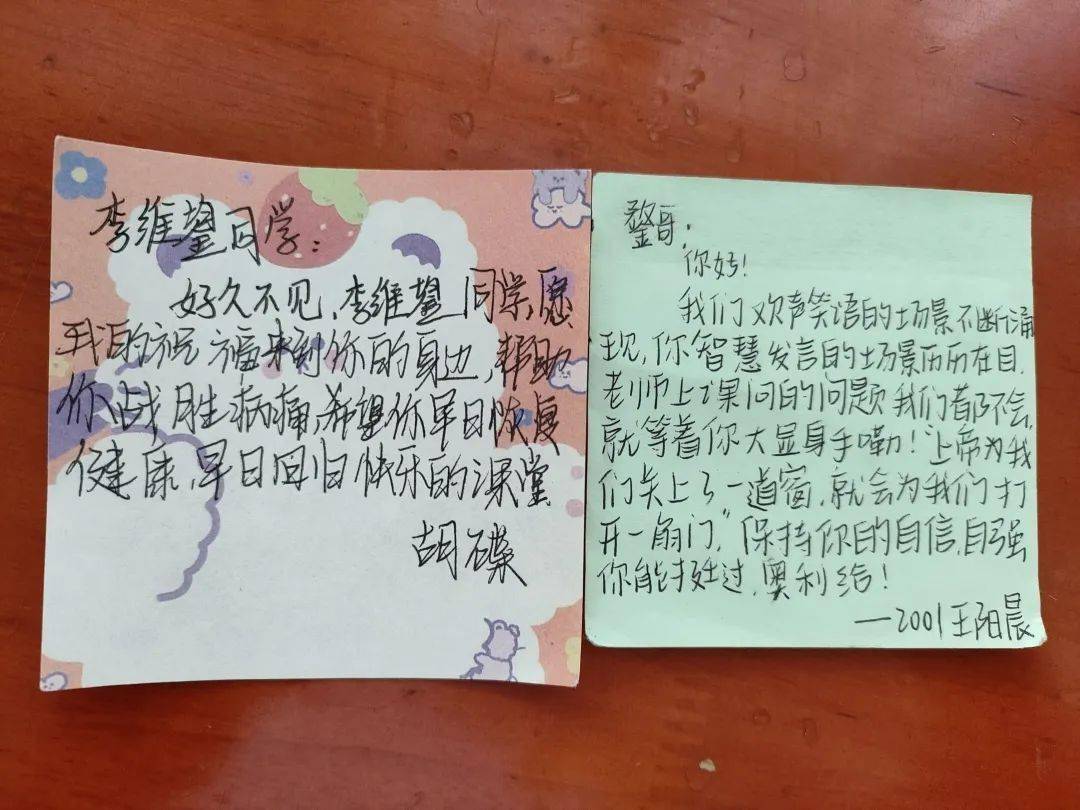 李维同学:
好久不见,李维同学,愿
我的祝福来到你的身边,帮助
你战胜病痛,希望你早日恢复
健康,早日回归快乐的课堂
胡碟
哥:
你好!
我们欢声笑语的场景不断涌
现,你智慧发言的场景历历在目,
老师上课问的问题我们都不会,
就等着你大显身手嘞!"上帝为我
们关上了一道窗,就会为我们打
开一扇门,"保持你的自信,自强
你能挺过,奥利给!
—2001王阳晨